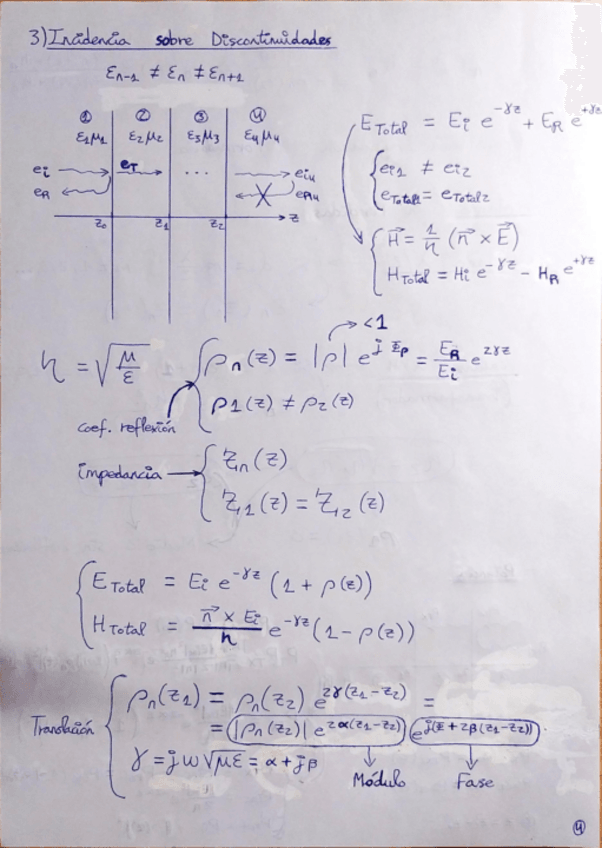 3) Incidencia sobre Discontinuidades
εn-1 ≠ εn ≠ εn+1
① ② ③ ④
ε1μ1 ε2μ2 ε3μ3 ε4μ4
ei eT ... ei4
eR eR4
z0 z1 z2 z
E Total = Ei e^-γz + ER e^+γz
ei1 ≠ ei2
eTotal1 = eTotal2
H⃗ = 1/η (n⃗ × E⃗)
H Total = Hi e^-γz - HR e^+γz
<1
η = √(μ/ε)
ρn(z) = |ρ| e^j Φρ = ER/Ei e^2γz
ρ1(z) ≠ ρ2(z)
coef. reflexión
impedancia
Zn(z)
Z1(z) = Z2(z)
E Total = Ei e^-γz (1 + ρ(z))
H Total = n⃗ × Ei/η e^-γz (1 - ρ(z))
Translación
ρn(z1) = ρn(z2) e^2γ(z1-z2) =
= |ρn(z2)| e^2α(z1-z2) e^j(Φ + 2β(z1-z2))
γ = jω√με = α + jβ
Módulo Fase
4